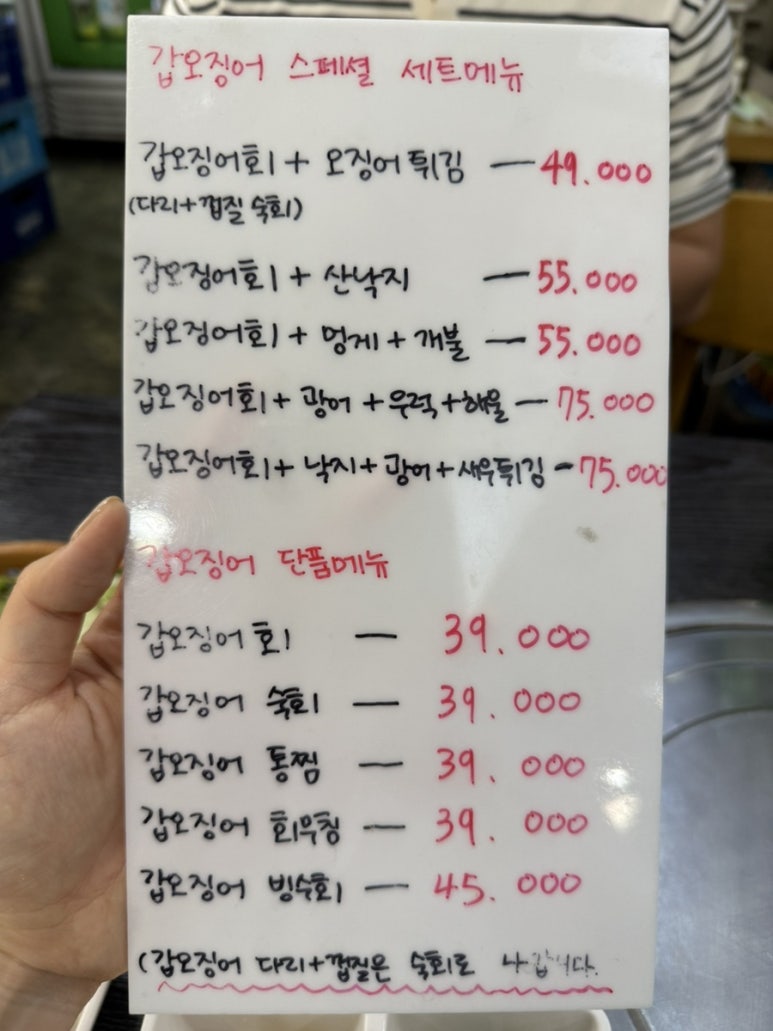 갑오징어 스페셜 세트메뉴
갑오징어회 + 오징어튀김 — 49.000
(다리+껍질 숙회)
갑오징어회 + 산낙지 — 55.000
갑오징어회 + 멍게 + 개불 — 55.000
갑오징어회 + 광어 + 우럭 + 해물 — 75.000
갑오징어회 + 낙지 + 광어 + 새우튀김 - 75.000
갑오징어 단품메뉴
갑오징어 회 — 39.000
갑오징어 숙회 — 39.000
갑오징어 통찜 — 39.000
갑오징어 회무침 — 39.000
갑오징어 빙수회 — 45.000
(갑오징어 다리+껍질은 숙회로 나갑니다.